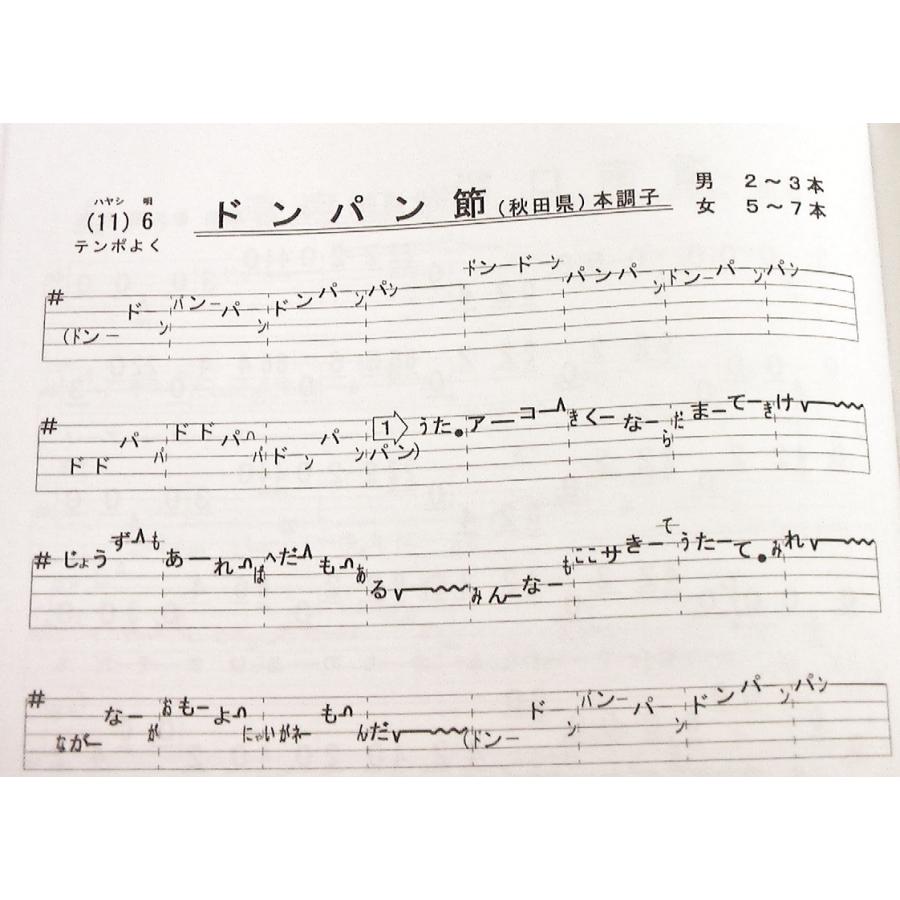 ハヤシ 唄
(11) 6
テンポよく
ドンパン節 (秋田県) 本調子
男 2～3本
女 5～7本
# (ドンー ドーン パンーパーン ドンパーン パン ドンードーン パンパーン ドンーパーン パン
# ドドパーパ ドドパパ ドンパン パン) 1 うた。アーコーきくーなーらだまーてーきけ
# じょうずも あーれーばへだもーある みんーなーもここサきーてうたーて。みれ
# ながーなーがおもーよにゃいがネーもんだ (ドンー ドーン パンーパーン ドンパーン パン